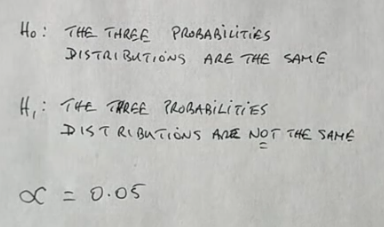 H₀: THE THREE PROBABILITIES
DISTRIBUTIONS ARE THE SAME
H₁: THE THREE PROBABILITIES
DISTRIBUTIONS ARE NOT THE SAME
α = 0.05